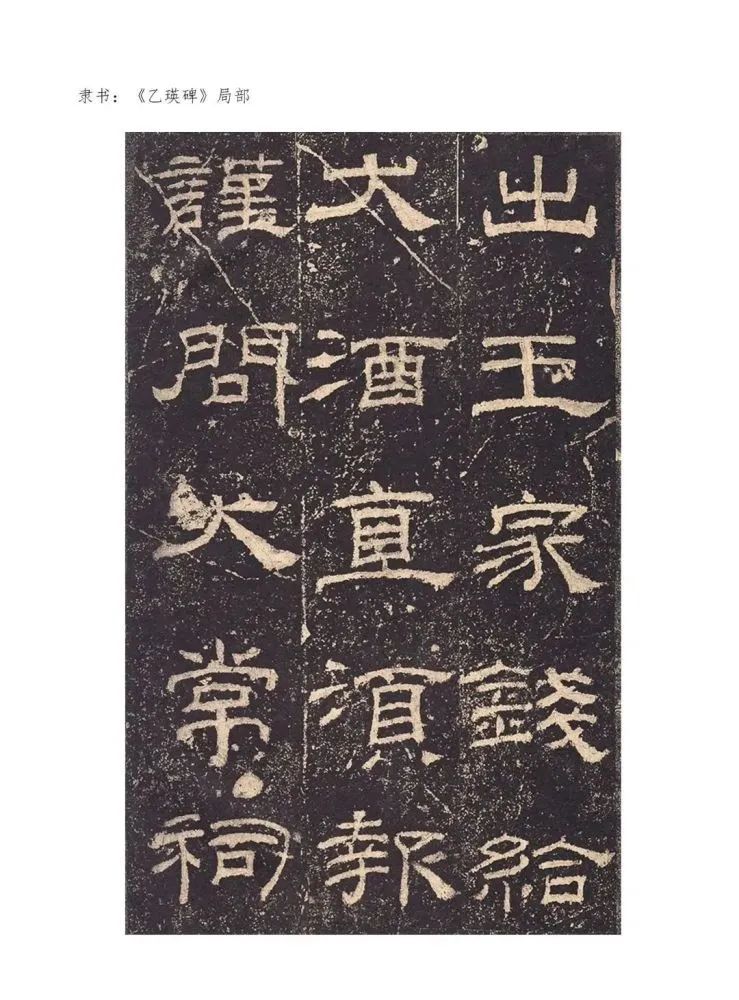 隶书：《乙瑛碑》局部
出王家錢給
犬酒直須報
謹問大常祠